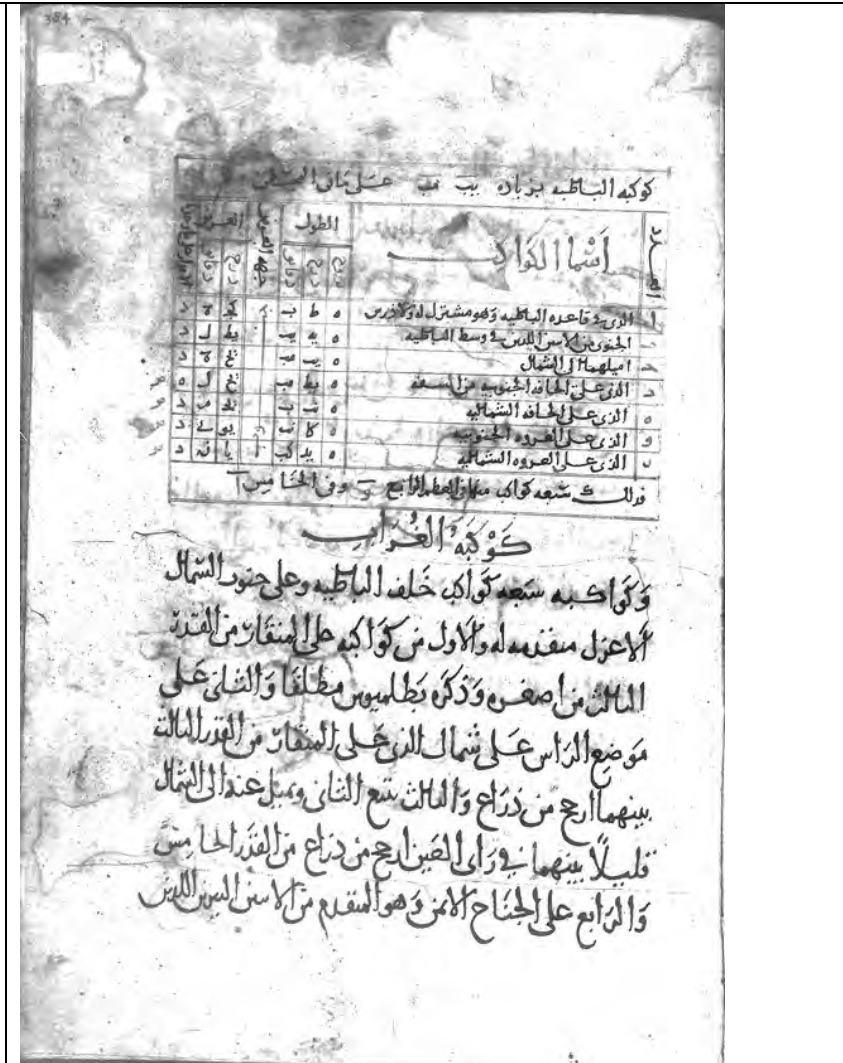 384
كوكبه الباطيه بزياده يب مب على ما في المجسطي
العدد اسما الكواكب الطول جهه العرض العرض
بروج درج دقائق درج دقائق
ا الذى فى قاعده الباطيه وهو مشترك له ولا ه ط ب كج ه د
الجنوبى من الاسن اللذين فى وسط الباطيه ه يط ل د
ح اميلهما الى الشمال ه يب مب يح ه د
د الذى على الحافه الجنوبيه من الشفه ه يط مب يح ل ه
ه الذى على الحافه الشماليه ه د
و الذى على العروه الجنوبيه ه كا د
ر الذى على العروه الشماليه ه يد كب يا ن د
فذلك سبعه كواكب منها فى العظم الرابع و وفى الخامس ا
كَوْكَبَهُ الغُرَابِ
وَكَواكبه سَبعه كَواكب خَلف الباطيه وعلى جنوب السماك
الاعزل متقدمه له وَالاول من كَواكبه على المنقار من القدر
الثالث من اصغره وَذكرَه بَطلميوس مطلقا وَالثانى عَلى
مَوضع الرَاس عَلى شمال الذى عَلى المنقار من القدر الثالث
بينهما ارجح من ذرَاع وَالثالث يتبع الثانى ويميل عنه الى الشمال
قليلًا بينهما فى رَاى العَين ارجح من ذراع من القدَر الخامِس
وَالرَابع على الجنَاح الايمن وَهو المتقدم من الاسن النيرين اللذين